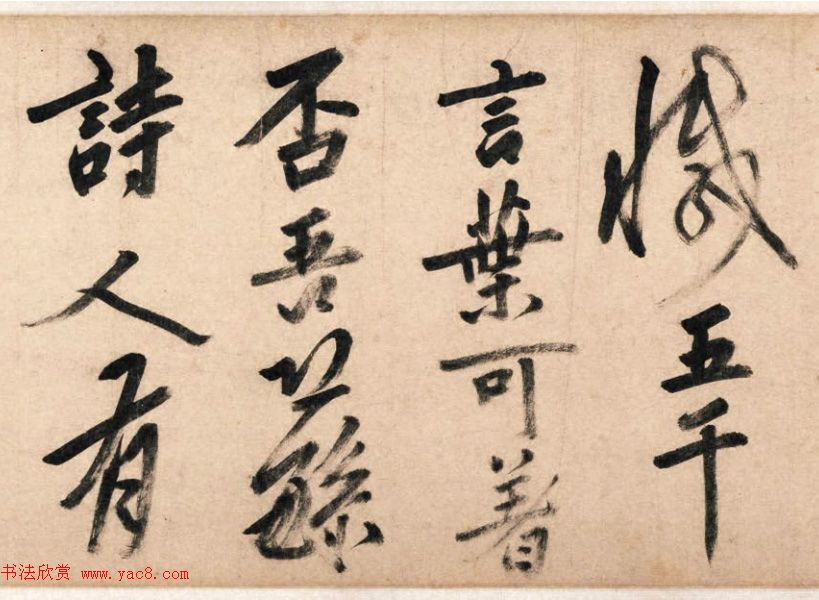 五千
言葉可著
否吾
詩人有
书法欣赏 www.yac8.com